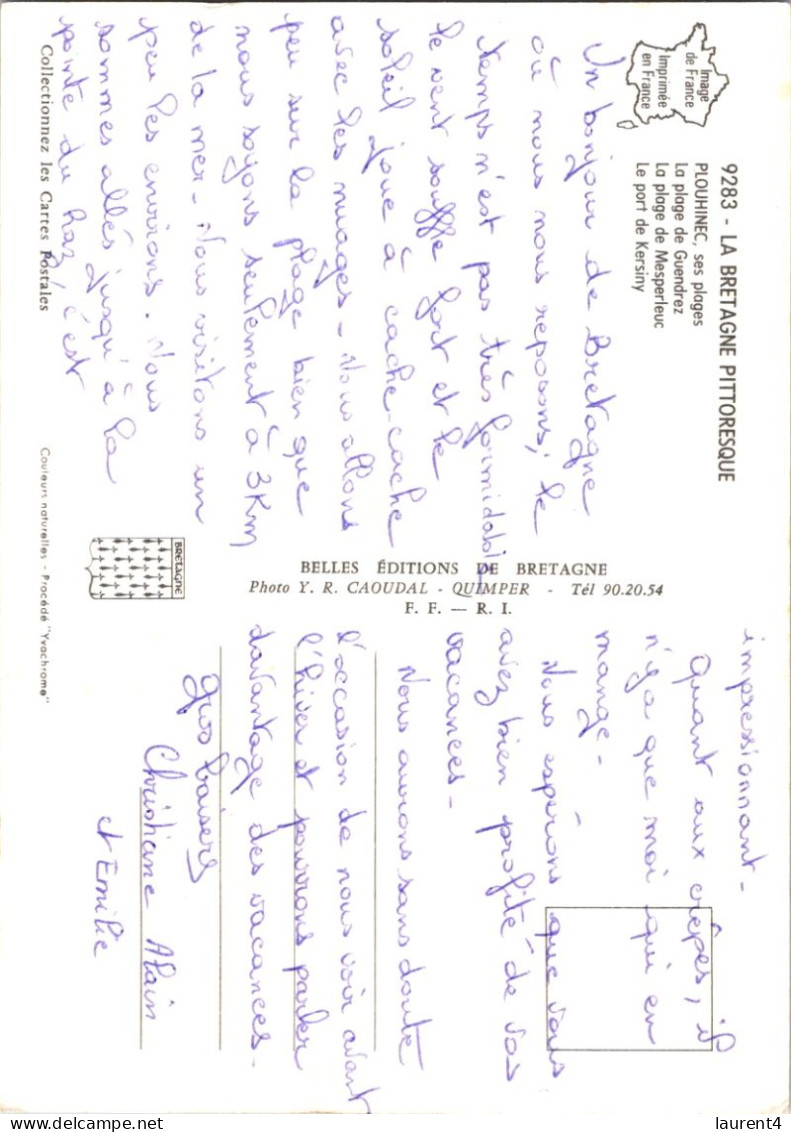 Image
de France
Imprimée
en France
9283 - LA BRETAGNE PITTORESQUE
PLOUHINEC, ses plages
La plage de Guendrez
La plage de Mesperleuc
Le port de Kersiny
Un bonjour de Bretagne
où nous nous reposons, le
temps n'est pas très formidable
le vent souffle fort et le
soleil joue à cache-cache
avec les nuages - Nous allons
peu sur la plage bien que
nous soyons seulement à 3 Km
de la mer - Nous visitons un
peu les environs. Nous
sommes allés jusqu'à la
pointe du Raz, c'est
Collectionnez les Cartes Postales
BRETAGNE
Couleurs naturelles - Procédé "Yvochrome"
BELLES ÉDITIONS DE BRETAGNE
Photo Y. R. CAOUDAL - QUIMPER - Tél 90.20.54
F. F. — R. I.
impressionnant -
Quant aux crêpes, il
n'y a que moi qui en
mange -
Nous espérons que vous
avez bien profité de vos
vacances -
Nous aurons sans doute
l'occasion de nous voir avant
l'hiver et pourrons parler
davantage des vacances -
Gros baisers
Christiane Alain
et Emilie
laurent4